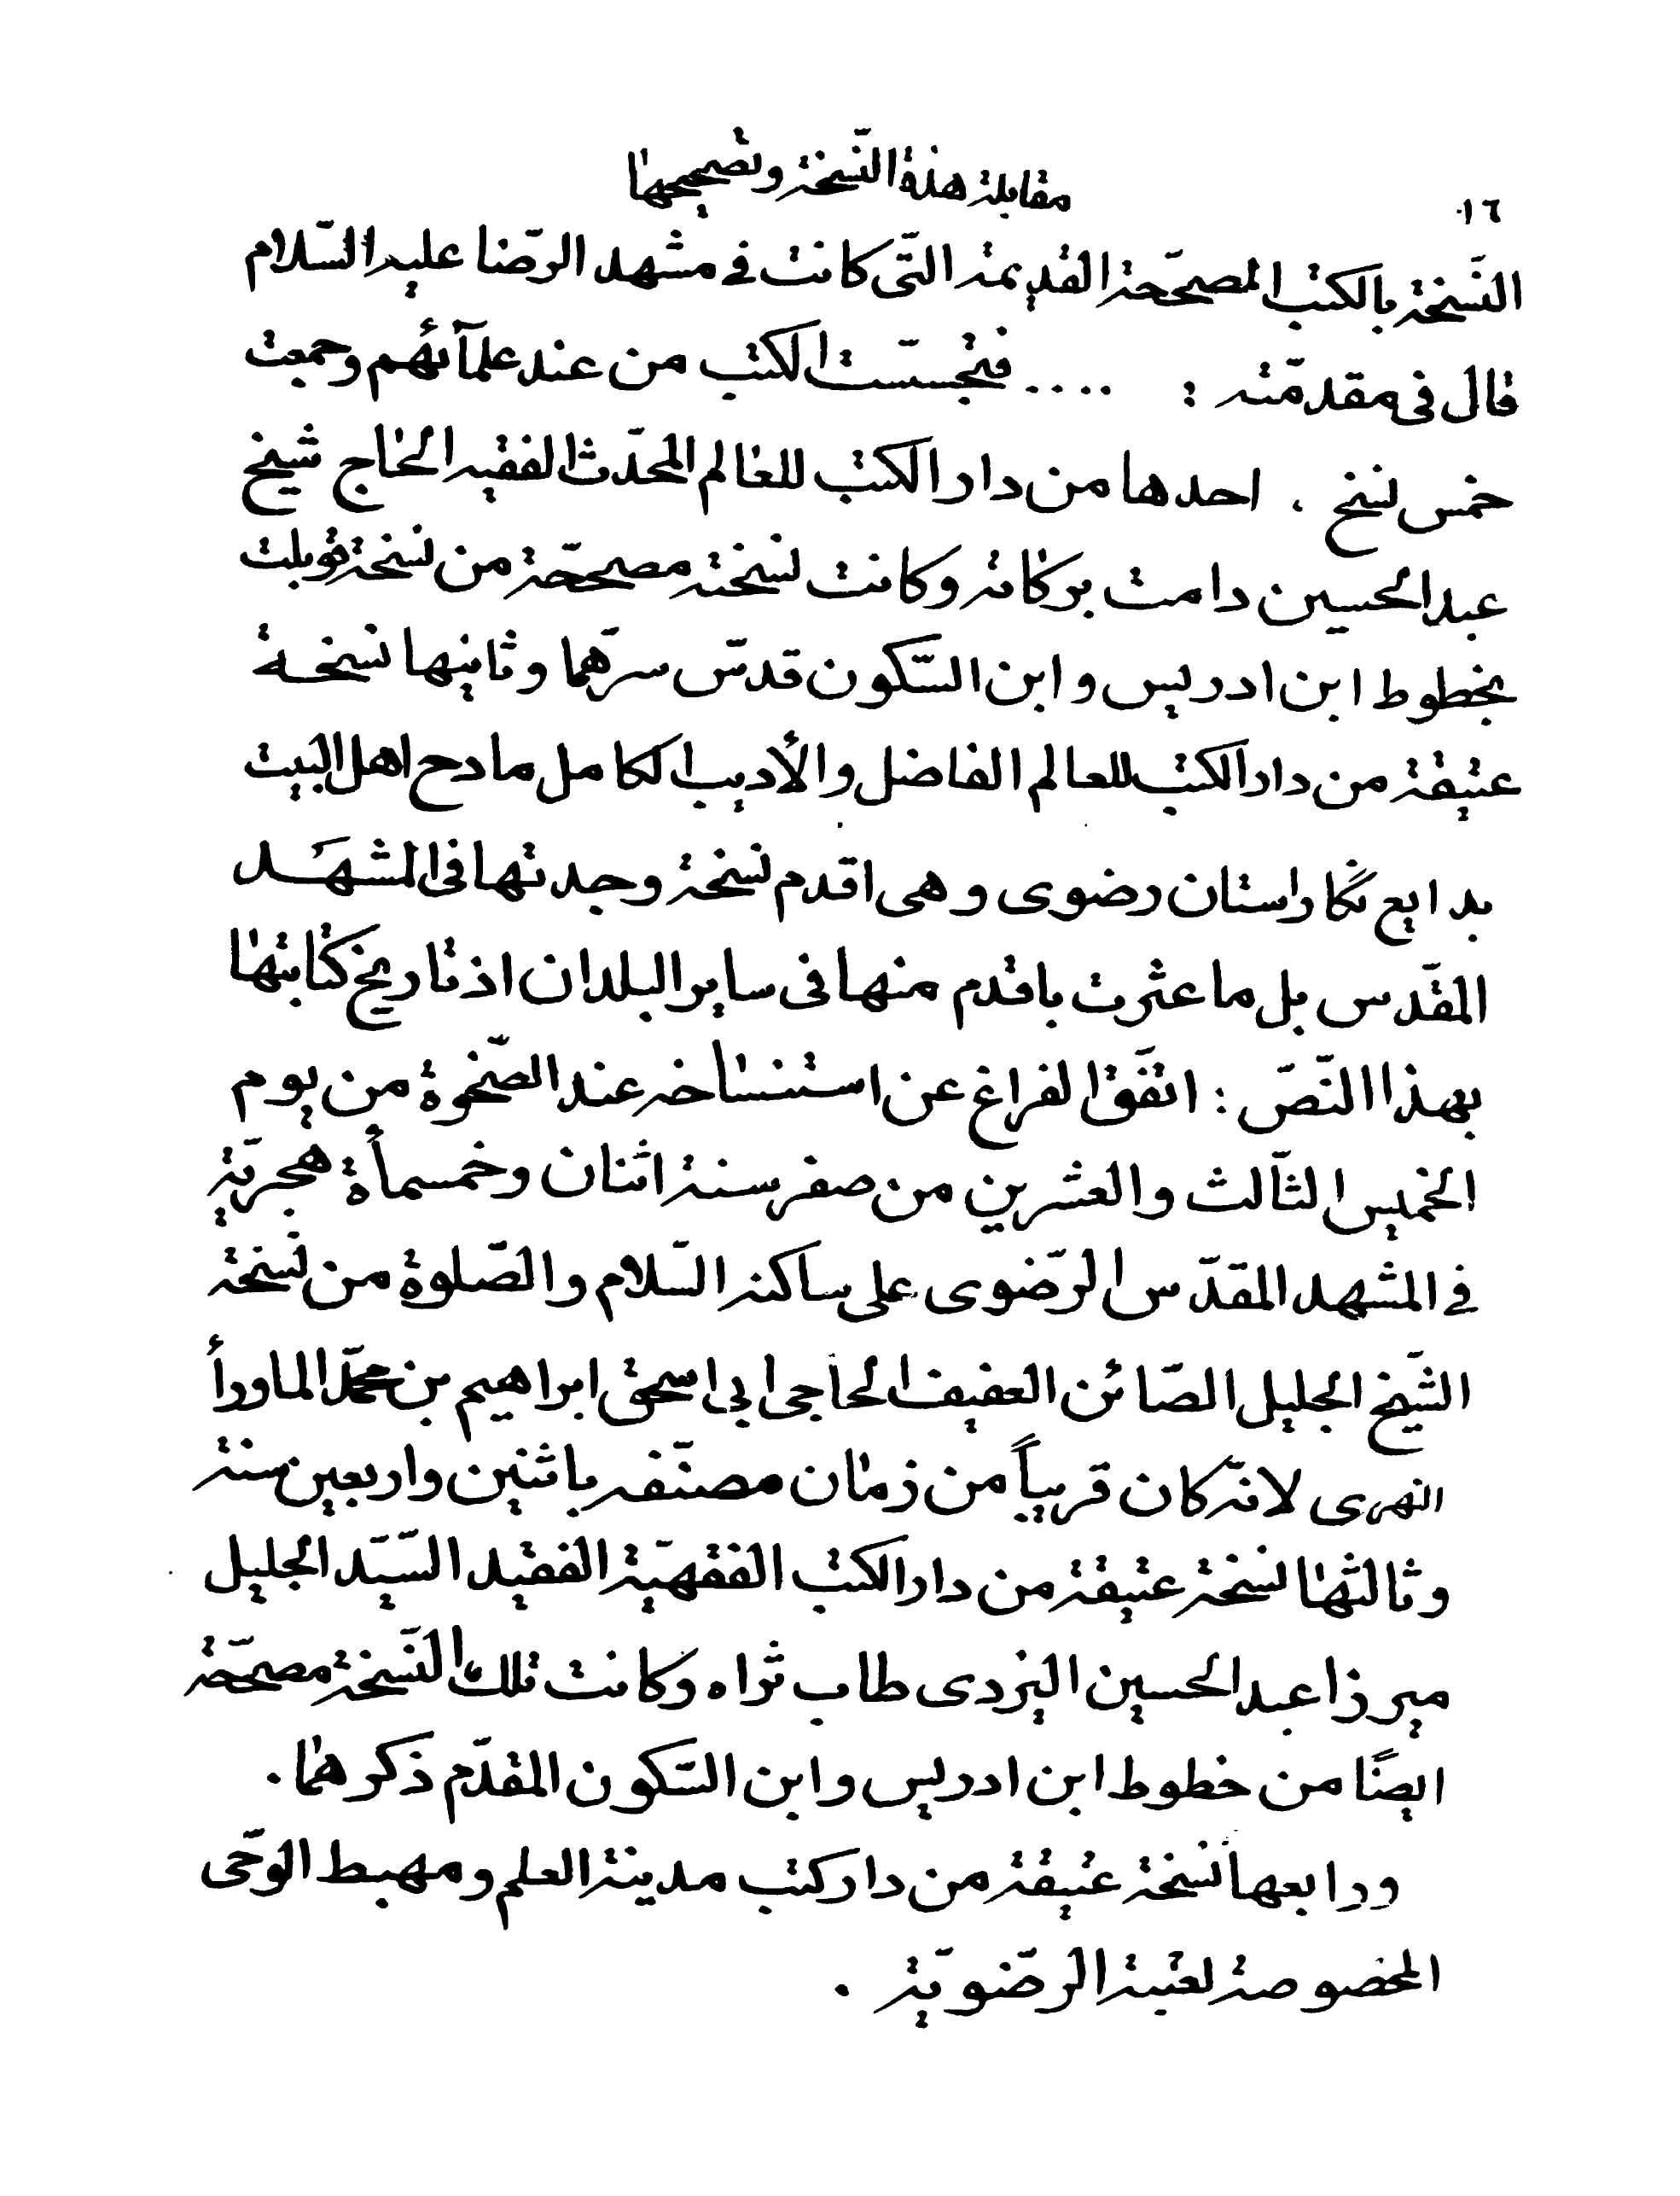 مقابلة هذه النّسخة وتصحيحها
١٦
النّسخة بالكتب المصحّحة القديمة التّى كانت في مشهد الرّضا عليه السّلام
قال فى مقدمّته : .... فتجسّست الكتب من عند علمآئهم وجمعت
خمس نسخ ، احدها من دار الكتب للعالم المحدّث الفقيه الحاج شيخ
عبدالحسين دامت بركاته وكانت نسخته مصححّة من نسخة قوبلت
بخطوط ابن ادريس و ابن السّكون قدسّ سرّهما و ثانيها نسخة
عتيقة من دار الكتب للعالم الفاضل والأديب الكامل مادح اهل البيت
بدايع نگار استان رضوى و هى اقدم نسخة وجدتها فى المشهَد
المقدّس بل ما عثرت باقدم منها فى ساير البلدان اذ تاريخ كتابتها
بهذا النّصّ : اتفَق الفراغ عن استنساخه عند الضّحوة من يوم
الخميس الثّالث والعشرين من صفر سنة اثنان وخمسمأة هجريّة
في المشهد المقدّس الرّضوى على ساكنه السّلام والصّلوة من نسخة
الشّيخ الجليل الصّائن العفيف الحاجى ابى اسحق ابراهيم بن محمّد الماورأ
النهرى لانّه كان قريباً من زمان مصنّفه باثنين واربعين سنة
و ثالثها نسخة عتيقة من دار الكتب الفقهيّة الفقيد السّيّد الجليل
ميرزا عبدالحسين اليزدى طاب ثراه وكانت تلك النّسخة مصحّحة
ايضًا من خطوط ابن ادريس وابن السّكون المقدّم ذكرهما .
ورابعها نسخة عتيقة من دار كتب مدينة العلم و مهبط الوحى
المخصوصة لعتبة الرضّويّة .